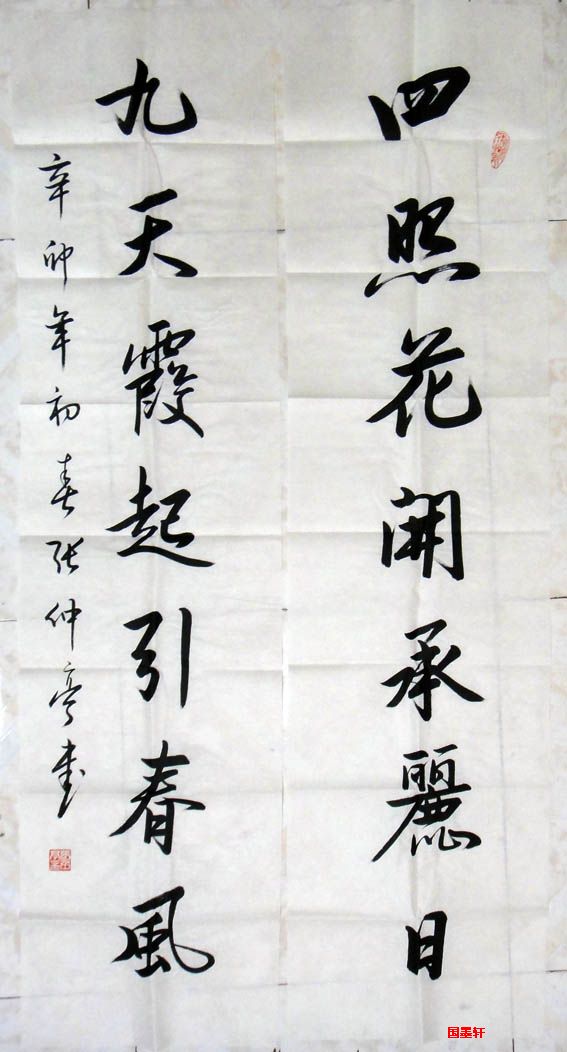 四照花開承麗日
九天霞起引春風
辛卯年初春張仲亭書
国墨轩